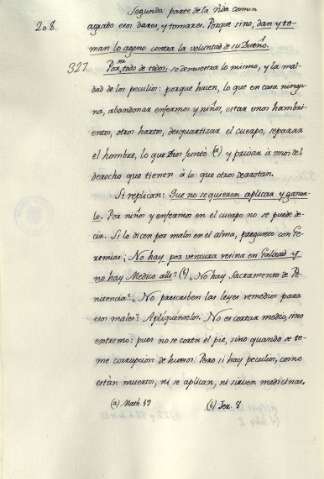 Segunda parte de la Vida comun
208.
agrado esos dares, y tomares. Porque sino, dan y to-
man lo ageno contra la voluntad de su Dueño.
327. Por todo se demuestra lo mismo, y la mal-
dad de los peculios: porque hacen, lo que en casa ningu-
no, abandonar enfermos y niños, estar unos hambri-
entos, otros hartos, desquartizar el cuerpo, separar
el hombre, lo que Dios juntó (a) y privar à unos del
derecho que tienen à lo que otros
Si replican: Que no se quieren aplicar y ganar-
lo. Por niños y enfermos en el cuerpo no se puede de-
cir. Si lo dicen por malos en el alma, pregunto con Ge-
remias: No hay por ventura resina en Galaad y
no hay Medico alli? (b). No hay Sacramento de Pe-
nitencia? No prescriben las leyes remedios para
esos males? Apliquenselos. No es cortar medio, sino
extremo: pues no se corta el pie, sino quando se te-
me corrupcion de huesos. Pero si hay peculios, como
estàn muertos, ni se aplican, ni sirven medicinas.
(a) Math. 19 (b) Jer. 8